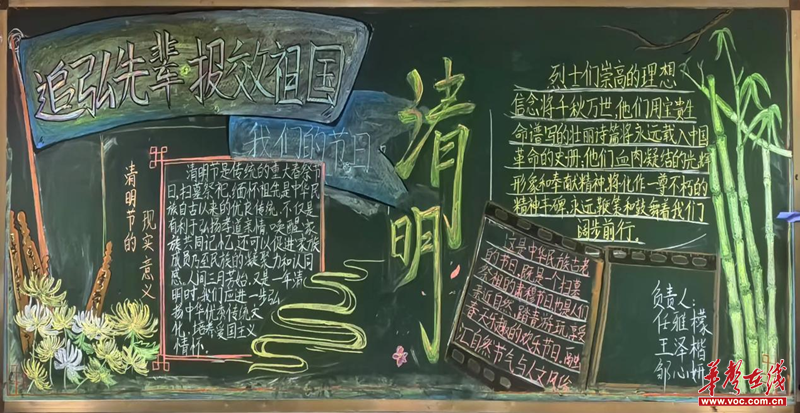 追弘先辈·报效祖国
我们的节日
清明节的
现实意义
清明节是传统的重大春祭节
日,扫墓祭祀、缅怀祖先是中华民
族自古以来的优良传统,不仅是
有利于弘扬孝道亲情、唤醒家
族共同记忆,还可以促进家族
成员乃至民族的凝聚力和认同
感。人间三月芳怡,又是一年清
明时,我们应进一步弘
扬中华优秀传统文
化,培养爱国主义
情怀。
清明
烈士们崇高的理想
信念将千秋万世,他们用宝贵生
命谱写的壮丽诗篇将永远载入中国
革命的史册,他们血肉凝结的光辉
形象和奉献精神将化作一尊不朽的
精神丰碑,永远鞭策和鼓舞着我们
阔步前行。
这是中华民族古老
的节日,既是一个扫墓
祭祖的肃穆节日也是人们
亲近自然、踏青游玩、享受
春天乐趣的欢乐节日,
自然节气与人文风俗
负责人:
任雅檬
王泽楷
邹心妍
华声在线
www.voc.com.cn